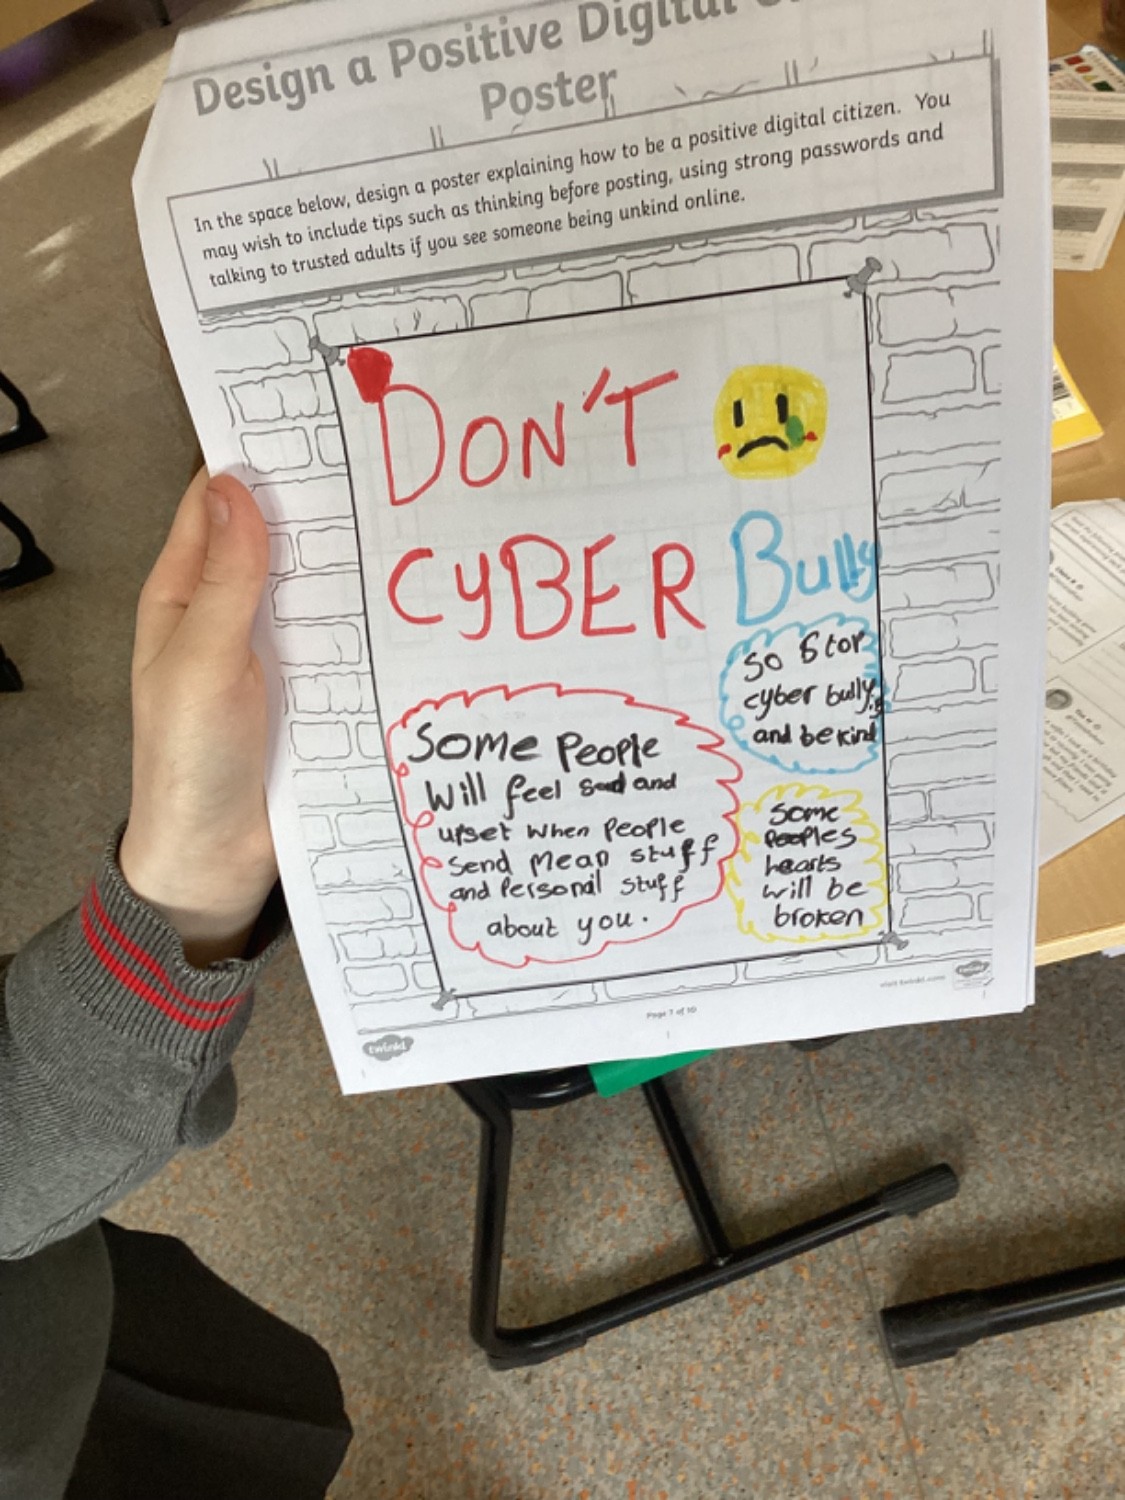 Design a Positive Digital
Poster
In the space below, design a poster explaining how to be a positive digital citizen. You
may wish to include tips such as thinking before posting, using strong passwords and
talking to trusted adults if you see someone being unkind online.
DON'T
CYBER Bully
So Stop
cyber bully
and be kind
Some People
Will feel sad and
upset when people
send mean stuff
and Personal stuff
about you.
Some
Peoples
hearts
will be
broken
visit twinkl.com
Page 7 of 10
twinkl